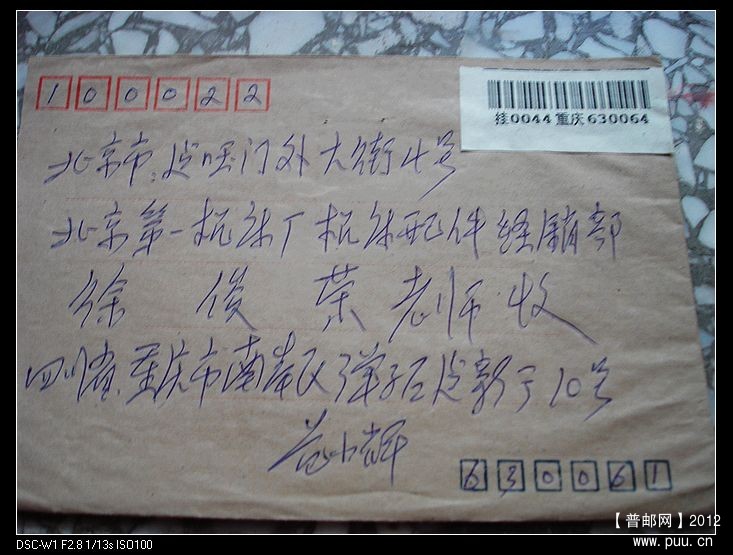 100022
挂0044 重庆 630064
北京市建国门外大街4号
北京第一机床厂机床配件经销部
徐俊荣老师收
四川省重庆市南岸区弹子石建新 10号
630061
【普邮网】2012
www.puu.cn
DSC-W1 F2.8 1/13s ISO100